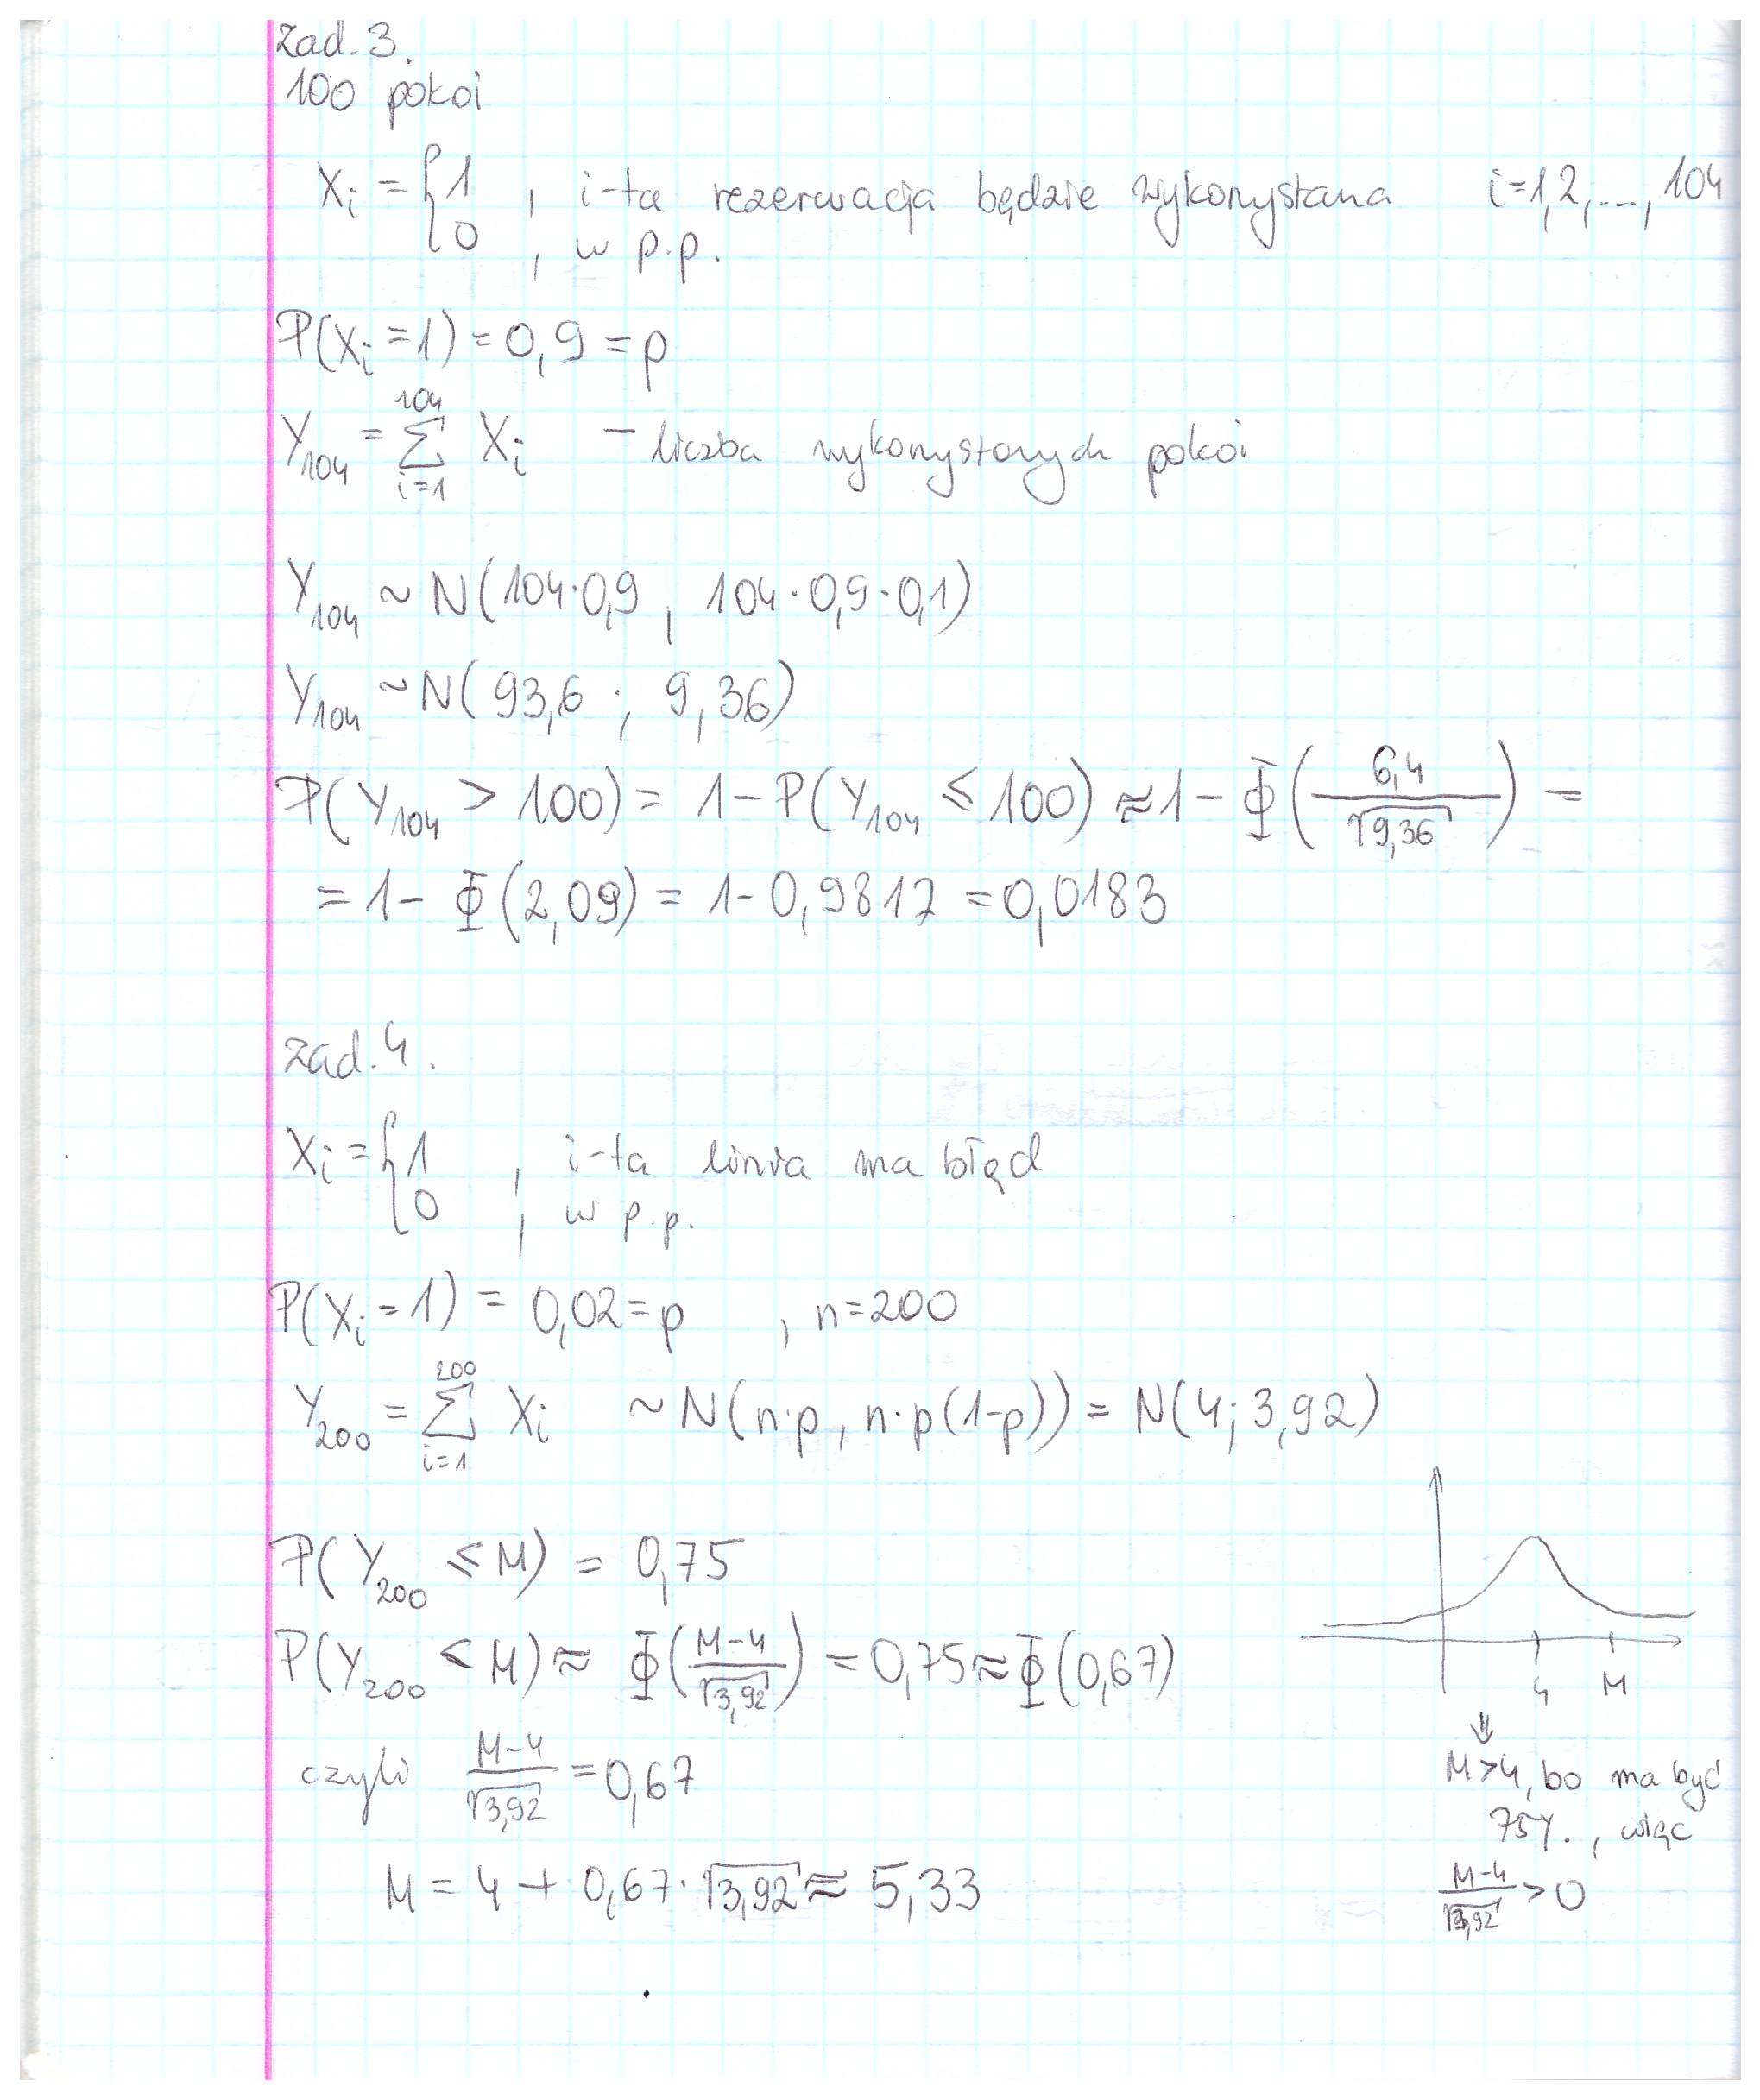 Zad. 3.
100 pokoi
Xi = {1 , i-ta rezerwacja będzie wykorzystana i=1,2,...,104
0 , w p.p.
P(Xi=1) = 0,9 = p
Y104 = Σ(i=1, 104) Xi – liczba wykorzystanych pokoi
Y104 ~ N(104·0,9 , 104·0,9·0,1)
Y104 ~ N(93,6 ; 9,36)
P(Y104 > 100) = 1 – P(Y104 ≤ 100) ≈ 1 – Φ(6,4/√9,36) =
= 1 – Φ(2,09) = 1 – 0,9817 = 0,0183
Zad. 4.
Xi = {1 , i-ta linia ma błąd
0 , w p.p.
P(Xi=1) = 0,02 = p , n=200
Y200 = Σ(i=1, 200) Xi ~ N(n·p, n·p(1-p)) = N(4; 3,92)
P(Y200 ≤ M) = 0,75
P(Y200 < M) ≈ Φ((M-4)/√3,92) = 0,75 ≈ Φ(0,67)
4 M
⇓
czyli (M-4)/√3,92 = 0,67
M>4, bo ma być
75%, więc
(M-4)/√3,92 > 0
M = 4 + 0,67·√3,92 ≈ 5,33